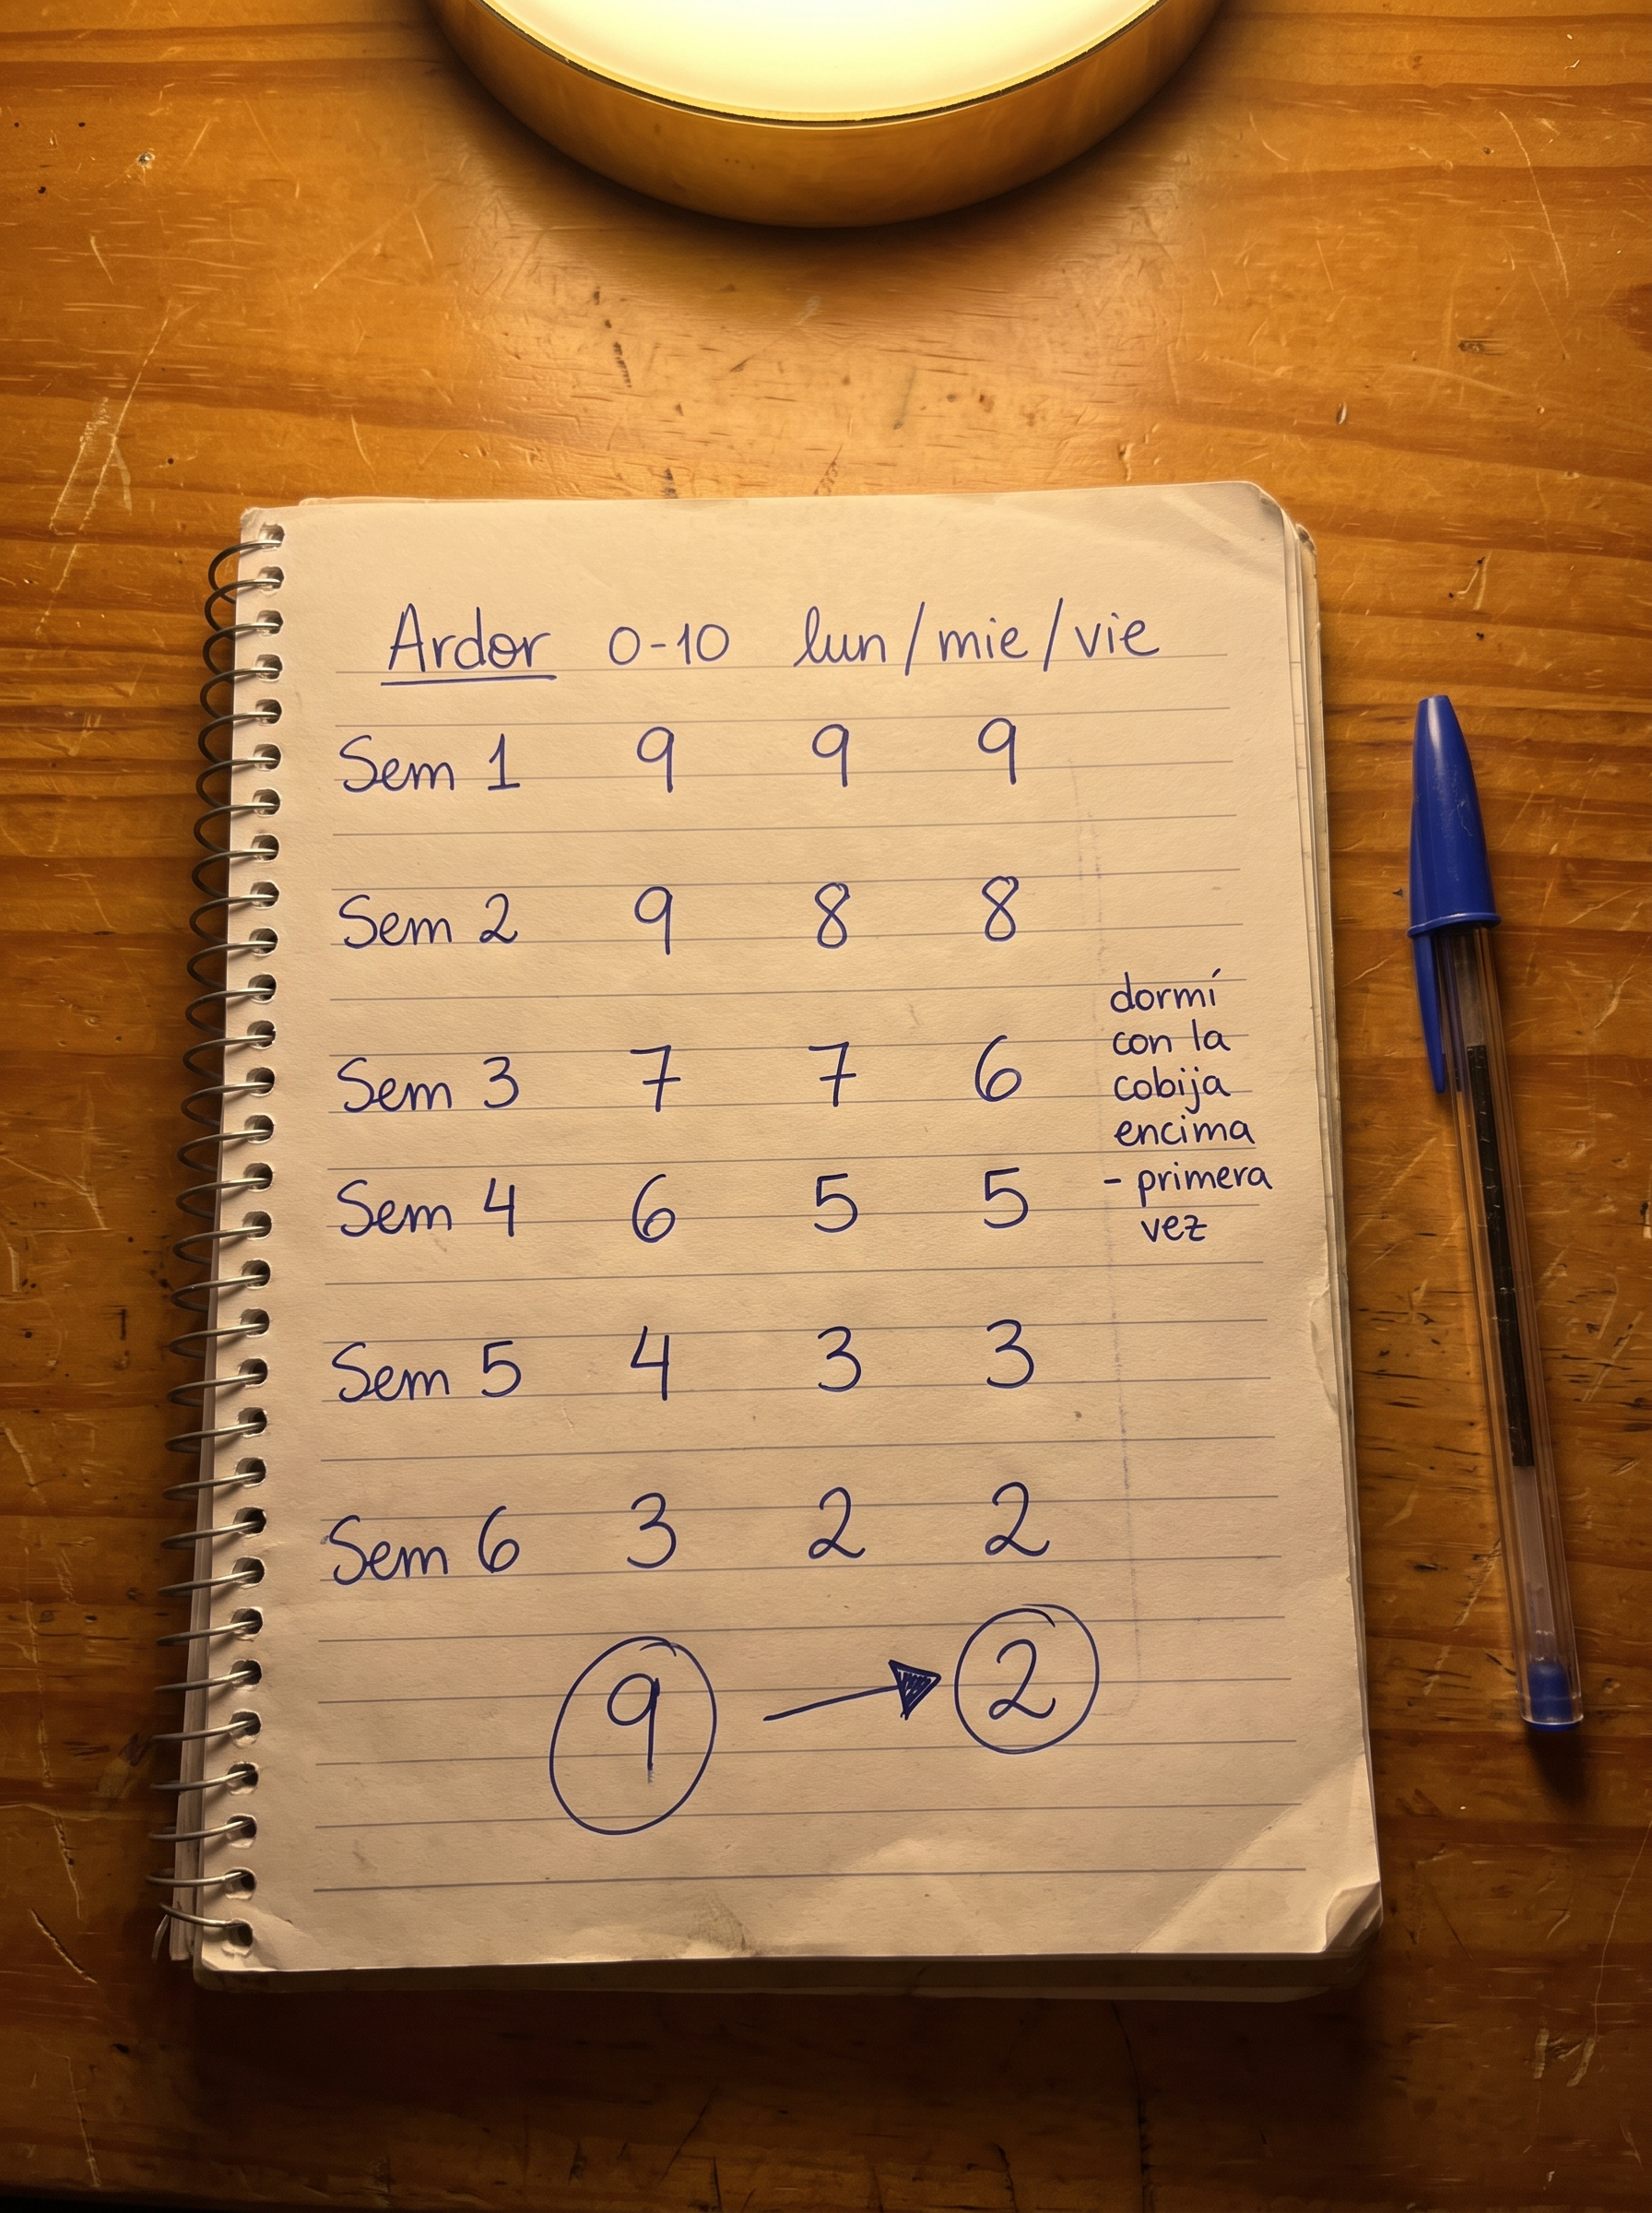 Ardor 0-10 lun/mie/vie
Sem 1 9 9 9
Sem 2 9 8 8
Sem 3 7 7 6
Sem 4 6 5 5
dormí
con la
cobija
encima
- primera
vez
Sem 5 4 3 3
Sem 6 3 2 2
9 → 2